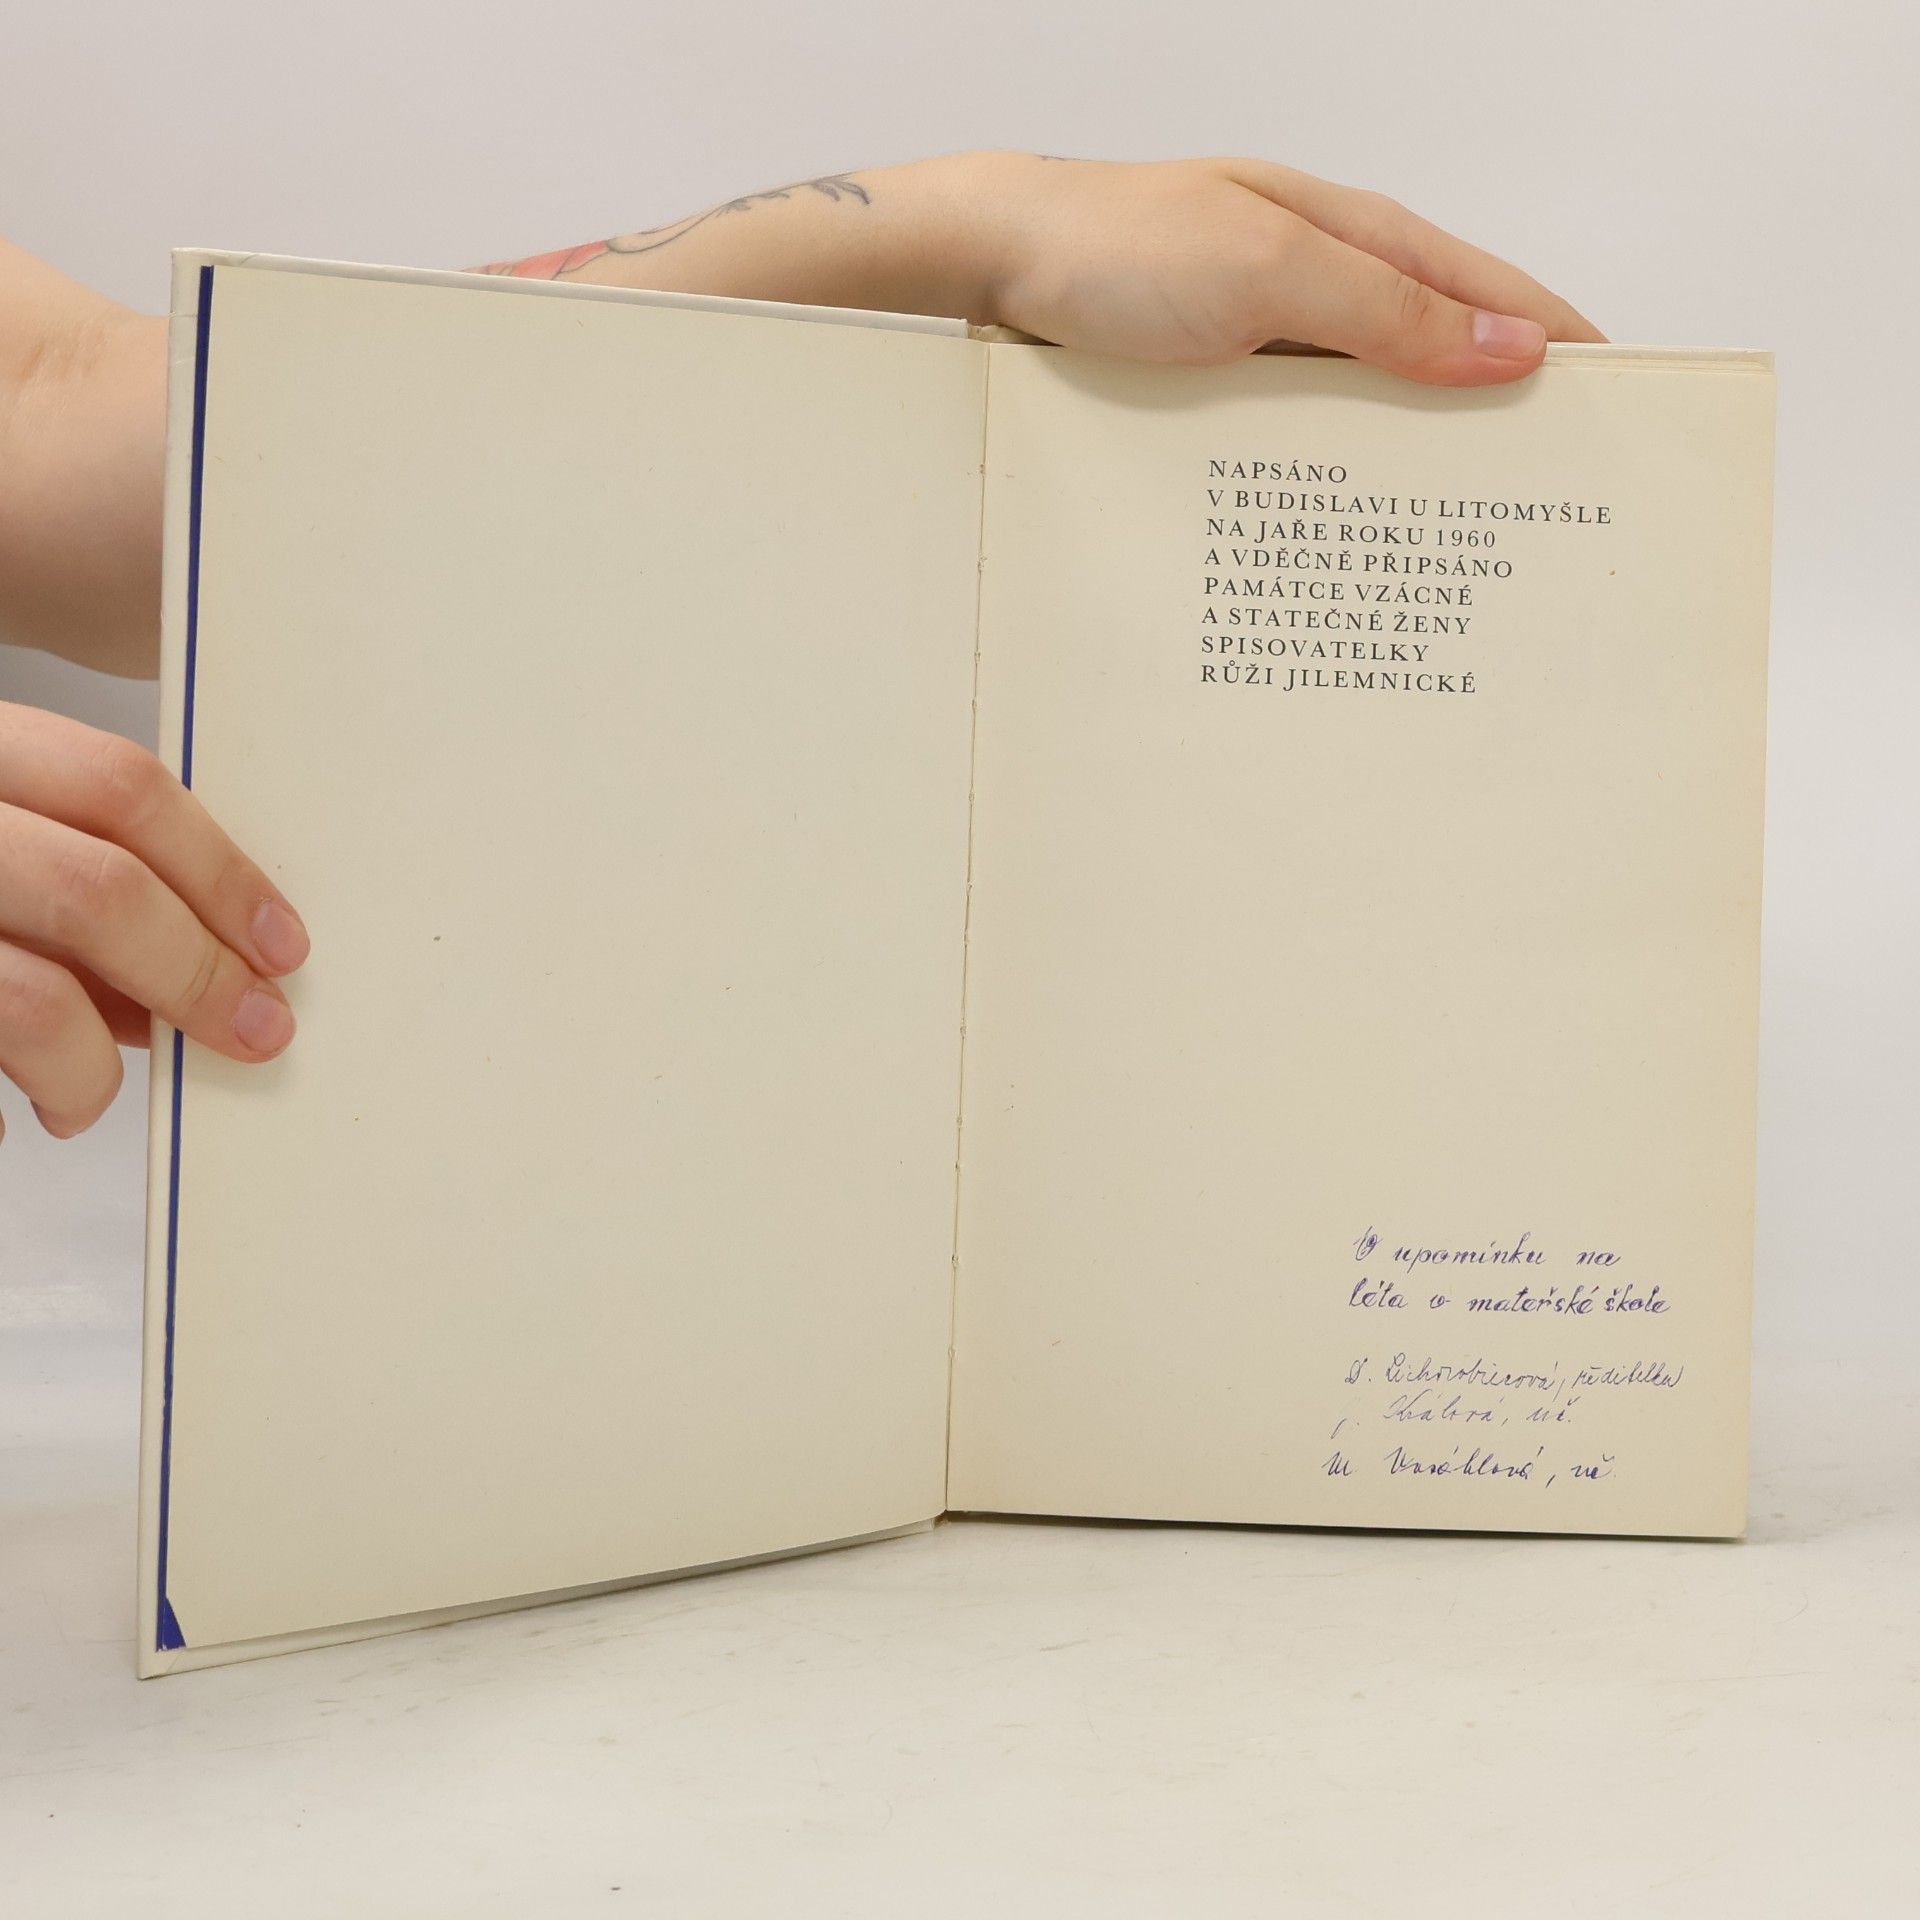 NAPSÁNO
V BUDISLAVI U LITOMYŠLE
NA JAŘE ROKU 1960
A VDĚČNĚ PŘIPSÁNO
PAMÁTCE VZÁCNÉ
A STATEČNÉ ŽENY
SPISOVATELKY
RŮŽI JILEMNICKÉ
V upomínku na
léta v mateřské škole
ředitelka
Králová, uč.
M Vosáhlová, uč.